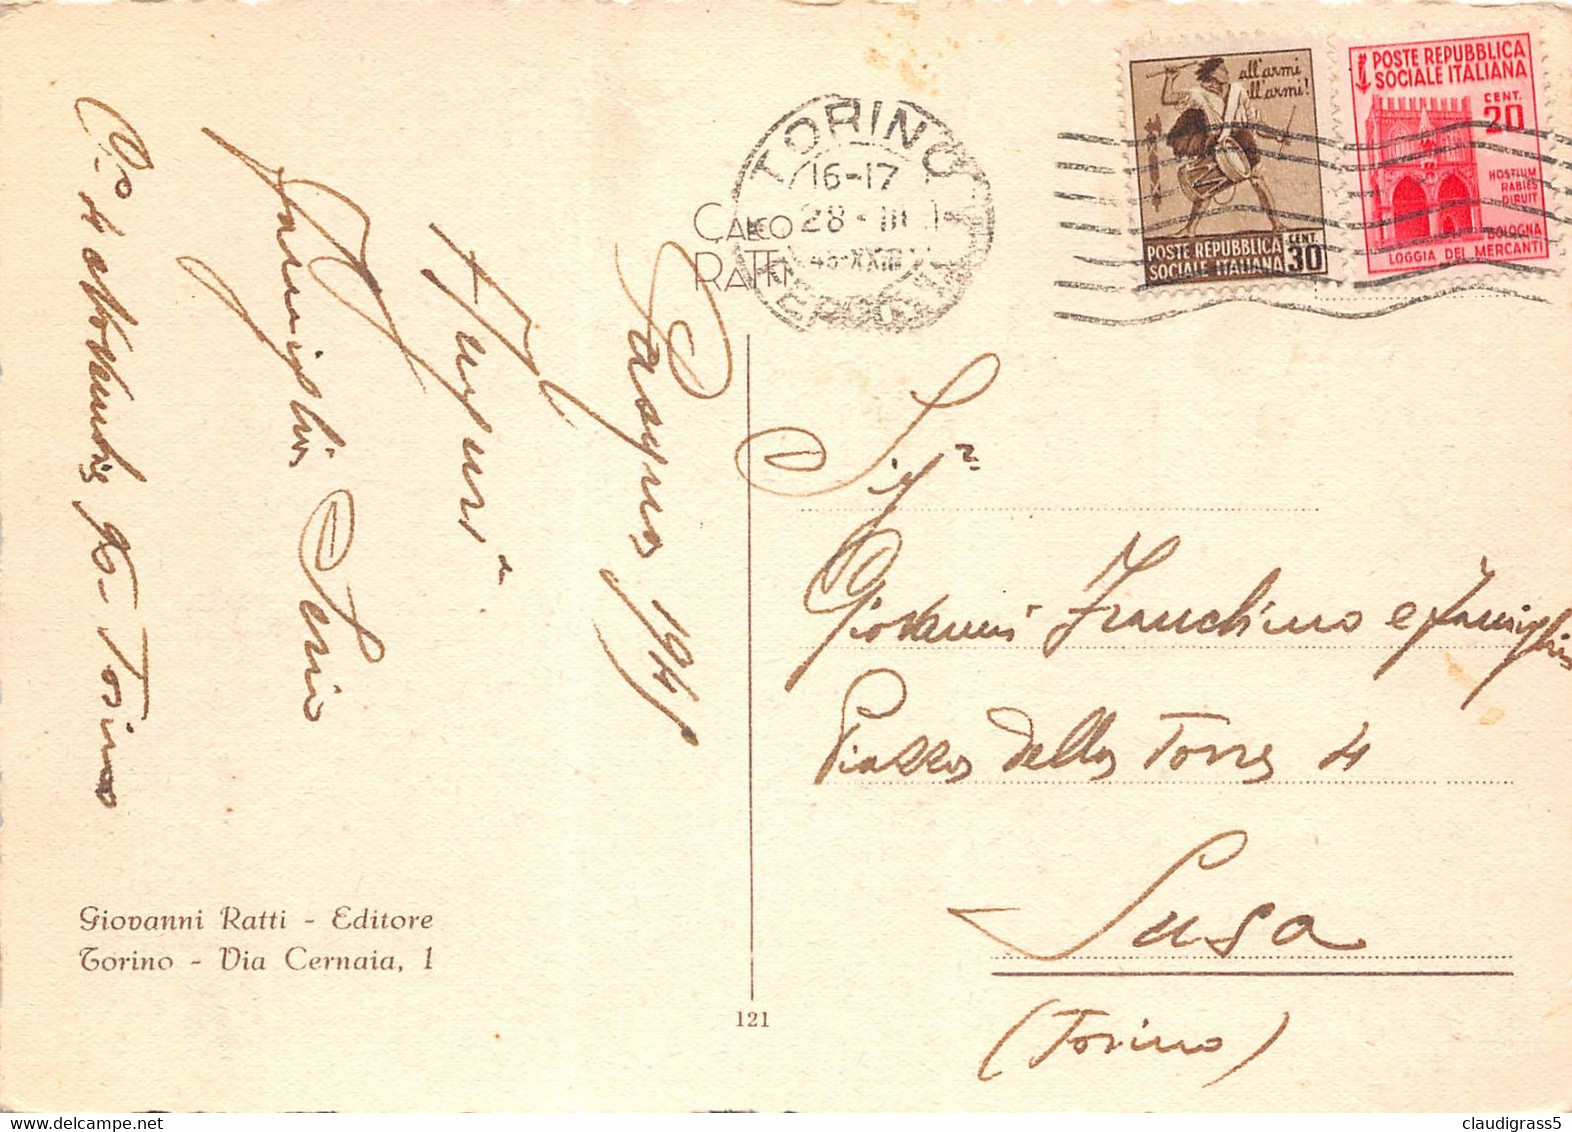 Pasqua 1945
Auguri
Famiglia Serio
TORINO
16-17
28-III
45-XXIII
CALCO
RATTI
all'armi
all'armi!
POSTE REPUBBLICA
SOCIALE ITALIANA
CENT.
30
POSTE REPUBBLICA
SOCIALE ITALIANA
CENT.
20
HOSTIUM
RABIES
DIRUIT
BOLOGNA
LOGGIA DEI MERCANTI
Sig.r
Giovanni Franchino e famiglia
Piazza della Torre 4
Susa
(Torino)
Giovanni Ratti - Editore
Torino - Via Cernaia, 1
121
claudigrass5